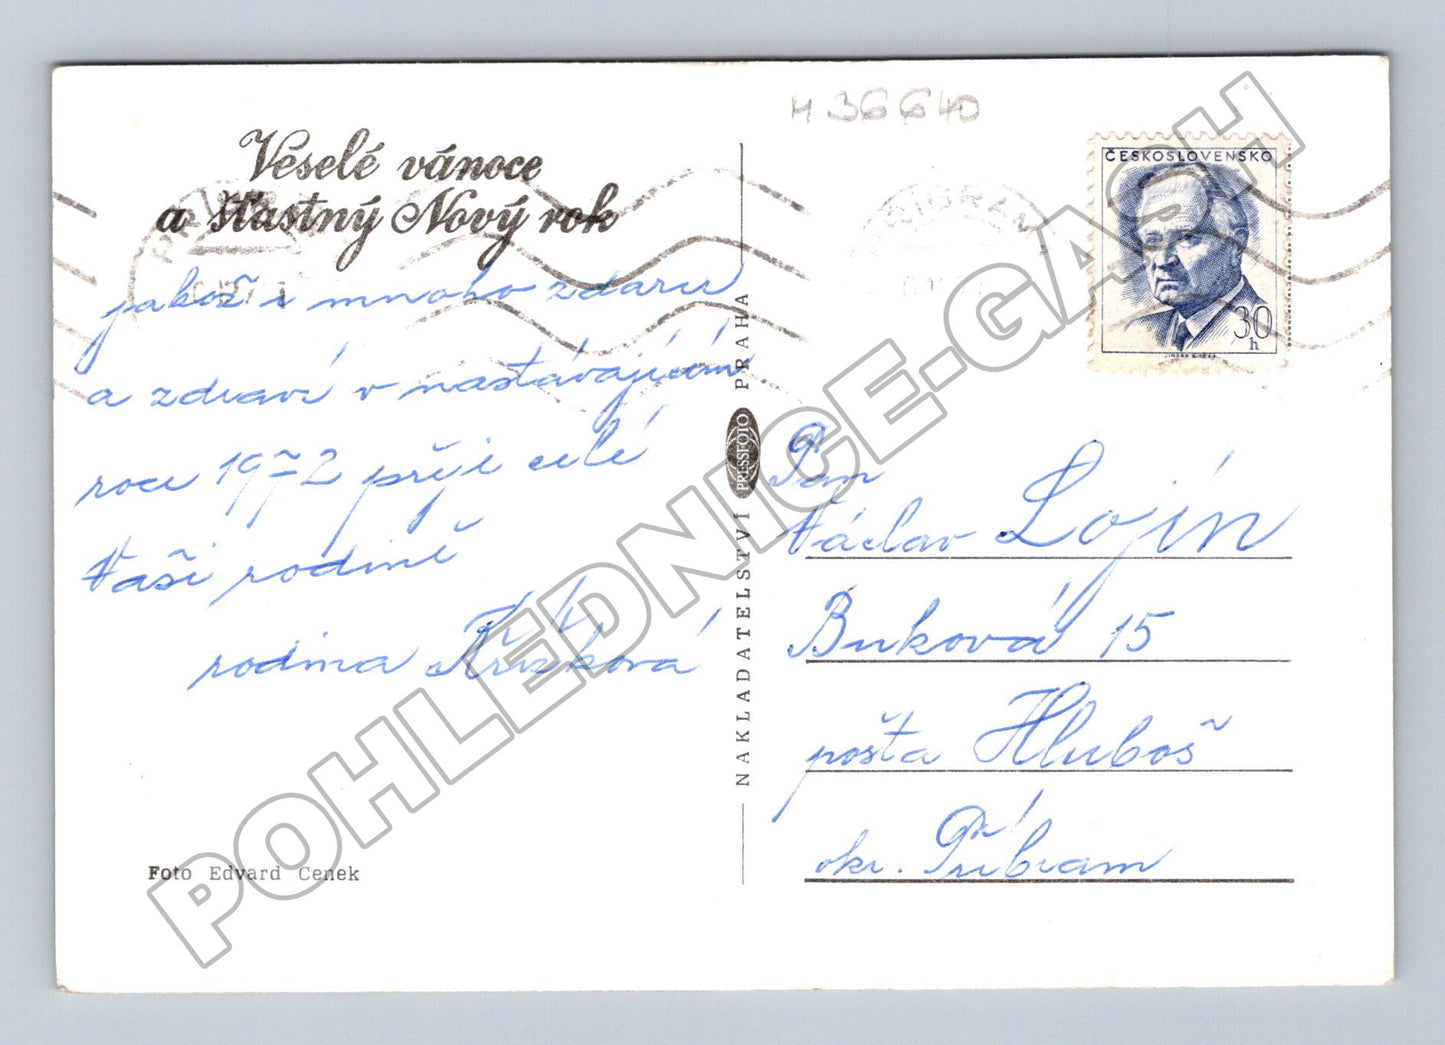 M 36640
Veselé vánoce
a šťastný Nový rok
jakož i mnoho zdaru
a zdraví v nastávajícím
roce 1972 přeje celé
Vaší rodině
rodina Křížková
Foto Edvard Cenek
NAKLADATELSTVÍ PRESSFOTO PRAHA
PŘÍBRAM
ČESKOSLOVENSKO
30 h
Pan
Václav Lojín
Buková 15
pošta Hluboš
okr. Příbram
POHLEDNICE-GASH